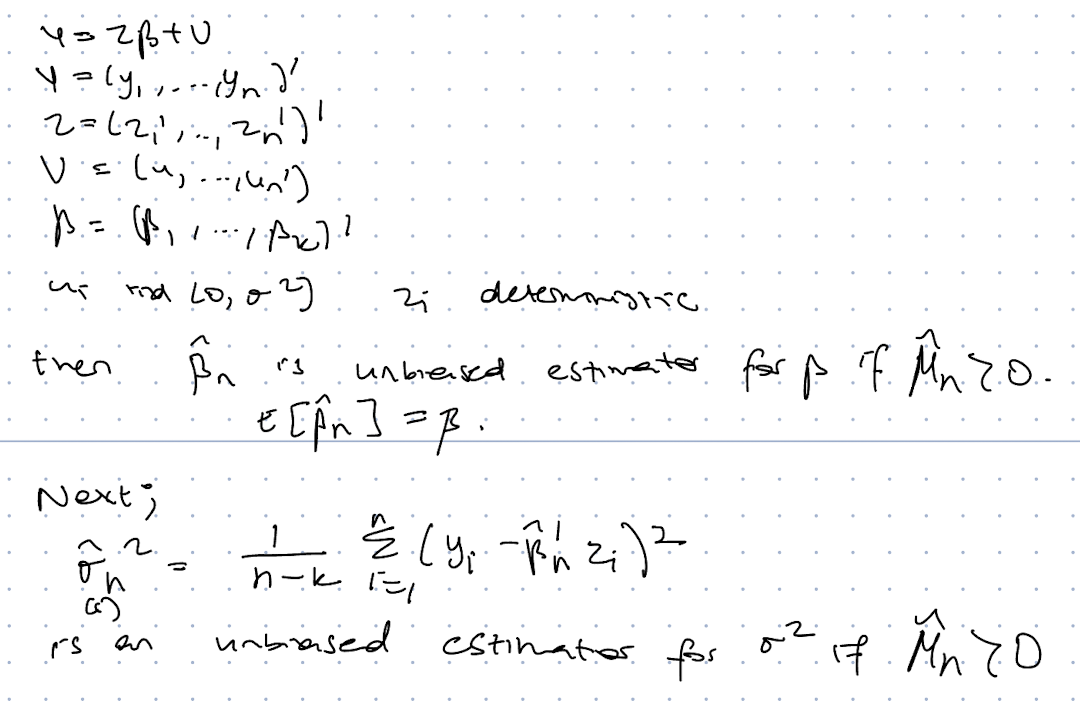 Y = Zβ + U
Y = (y₁, ..., yₙ)'
Z = (z₁', .., zₙ')'
U = (u, ..., uₙ')
β = (β₁, ..., βₖ)'
uᵢ iid (0, σ²) zᵢ deterministic.
then β̂ₙ is unbiased estimator for β if M̂ₙ > 0.
E[β̂ₙ] = β.
Next;
σ̂ₙ² = 1/(n-k) Σᵢ₌₁ⁿ (yᵢ - β̂ₙ' zᵢ)²
(s)
is an unbiased estimator for σ² if M̂ₙ > 0